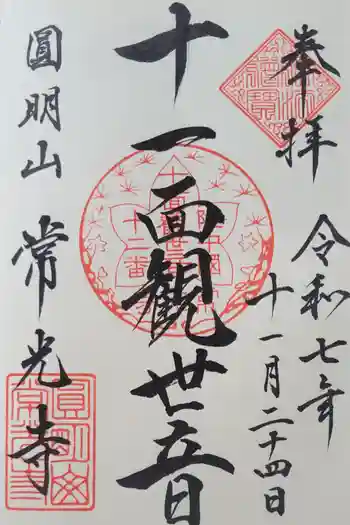 奉拝
令和七年
十一月二十四日
十一面観世音
圓明山
常光寺
十二番